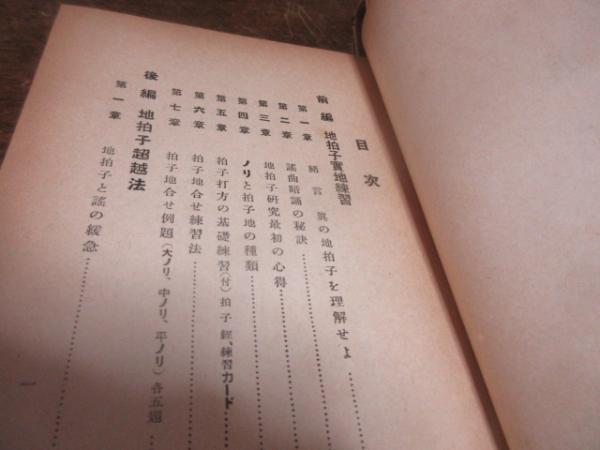 目次
前編 地拍子實地練習
第一章 緒言 眞の地拍子を理解せよ
第二章 謠曲暗誦の秘訣
第三章 地拍子硏究最初の心得
第四章 ノリと拍子地の種類
第五章 拍子打方の基礎練習(付)拍子經、練習カード
第六章 拍子地合せ練習法
第七章 拍子地合せ例題(大ノリ、中ノリ、平ノリ)各五題
後編 地拍子超越法
第一章 地拍子と謠の緩急
一